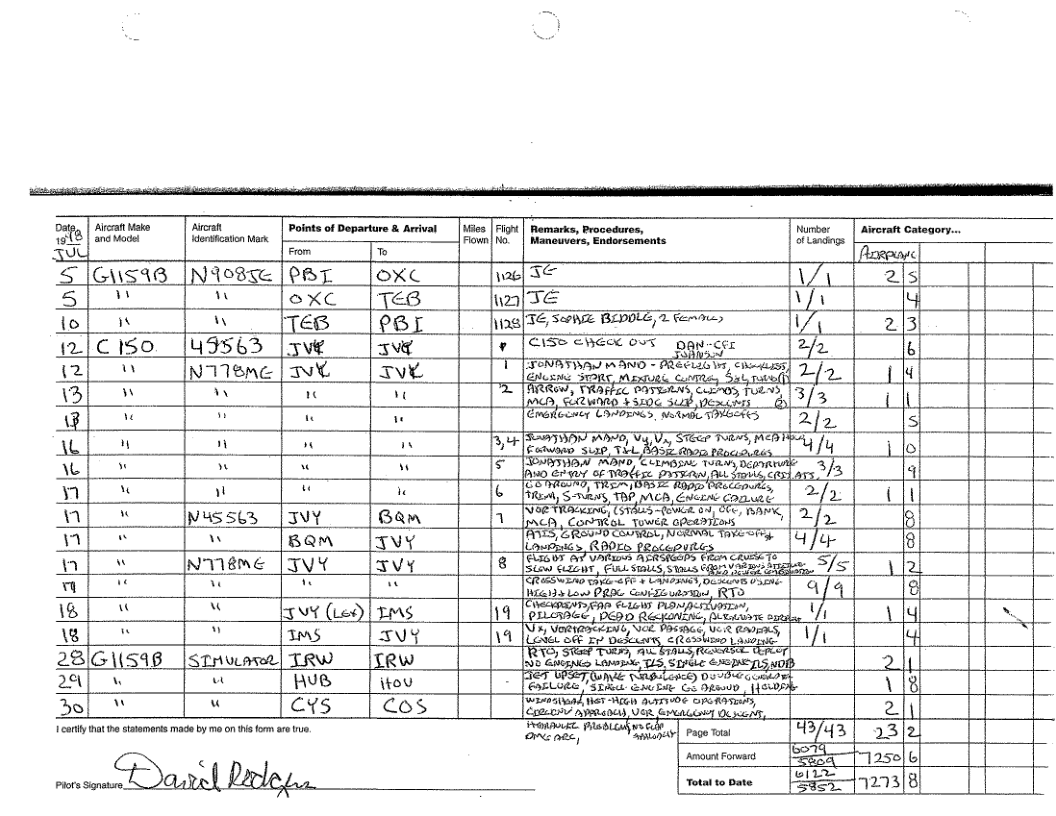 Date Aircraft Make and Model Aircraft Identification Mark Points of Departure & Arrival Miles Flown Flight No. Remarks, Procedures, Maneuvers, Endorsements Number of Landings Aircraft Category...
19 JUL From To AIRPLANE
5 G1159B N908JE PBI OXC 1126 JE 1/1 2 5
5 " " OXC TEB 1127 JE 1/1 4
10 " " TEB PBI 1128 JE, SOPHIE BIDDLE, 2 FEMALES 1/1 2 3
12 C 150 49563 JVY JVY C150 CHECK OUT DAN-CFI JOHNSON 2/2 6
12 " N778ME JVY JVY 1 JONATHAN MANO - PREFLIGHT, CHECKLIST,
ENGINE START, MIXTURE CONTROL, S&L, TURNS 2/2 1 4
13 " " " " 2 ARROW, TRAFFIC PATTERNS, CLIMBS, TURNS,
MCA, FORWARD + SIDE SLIP, DESCENTS 3/3 1 1
13 " " " " EMERGENCY LANDINGS, NORMAL TAKEOFFS 2/2 5
16 " " " " 3,4 JONATHAN MANO, Vy, Vx, STEEP TURNS, MCA
FORWARD SLIP, T&L, BASIC RADIO PROCEDURES 4/4 1 0
16 " " " " 5 JONATHAN MANO, CLIMBING TURNS, DEPARTURE
AND ENTRY OF TRAFFIC PATTERN, ALL STALLS, 3/3 9
17 " " " " 6 GO AROUND, TRIM, BASIC RADIO PROCEDURES,
TREM, S-TURNS, TAP, MCA, ENGINE FAILURE 2/2 1 1
17 " N45563 JVY BQM 7 VOR TRACKING, (STALLS-POWER ON, OFF, BANK,
MCA, CONTROL TOWER OPERATIONS 2/2 8
17 " " BQM JVY ATIS, GROUND CONTROL, NORMAL TAKE-OFF +
LANDINGS, RADIO PROCEDURES 4/4 8
17 " N778ME JVY JVY 8 FLIGHT AT VARIOUS AIRSPEEDS FROM CRUISE TO
SLOW FLIGHT, FULL STALLS, STALLS FROM VARIOUS 5/5 1 2
17 " " " " CROSSWIND TAKE-OFF + LANDINGS, DESCENTS USING
HIGH + LOW DRAG CONFIGURATION, RTO 9/9 8
18 " " JVY (LEX) IMS 19 CHECKPOINTS, FAA FLIGHT PLAN/ACTIVATION,
PILOTAGE, DEAD RECKONING, ALTERNATE 1/1 1 4
18 " " IMS JVY 19 Vx, VOR TRACKING, VOR PASSAGE, VOR RADIALS,
LEVEL OFF IN DESCENTS, CROSSWIND LANDING 1/1 4
28 G1159B SIMULATOR IRW IRW RTO, STEEP TURNS, ALL STALLS, REVERSER DEPLOY
NO ENGINES LANDING, ILS, SINGLE ENGINE ILS, NDB 2 1
29 " " HUB HOU JET UPSET, (WAKE TURBULENCE) DOUBLE
FAILURE, SINGLE ENGINE GO AROUND, HOLDING 1 8
30 " " CYS COS WINDSHEAR, HOT-HIGH ALTITUDE OPERATIONS,
CIRCLING APPROACH, VOR, EMERGENCY DESCENT, 2 1
I certify that the statements made by me on this form are true. HYDRAULIC PROBLEM, NO FLAP APPROACH Page Total 43/43 23 2
DME ARC,
Amount Forward 6079 5809 7250 6
Pilot's Signature David Rodgers Total to Date 6122 5852 7273 8